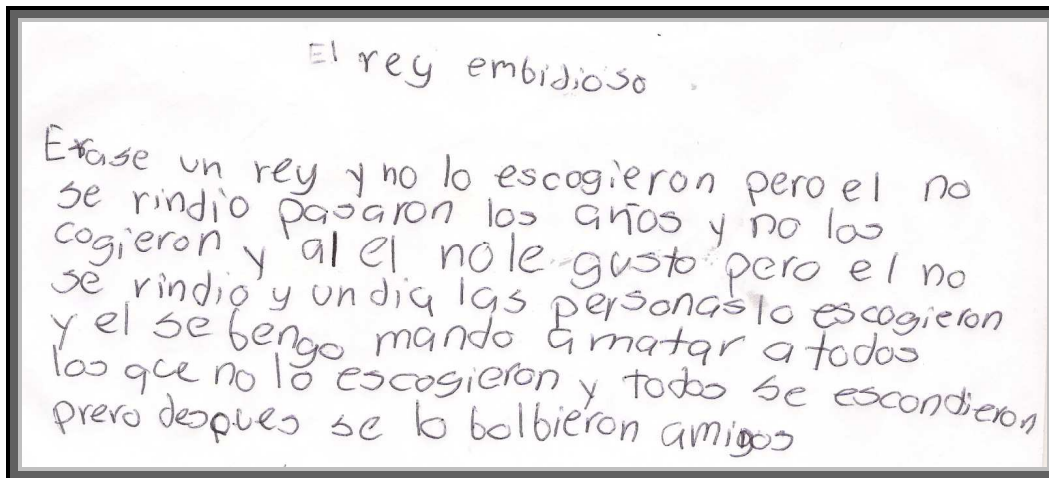 El rey embidioso
Erase un rey y no lo escogieron pero el no
se rindio pasaron los años y no los
cogieron y al el no le gusto pero el no
se rindio y un dia las personas lo escogieron
y el se bengo mando a matar a todos
los que no lo escogieron y todos se escondieron
prero despues se lo bolbieron amigos